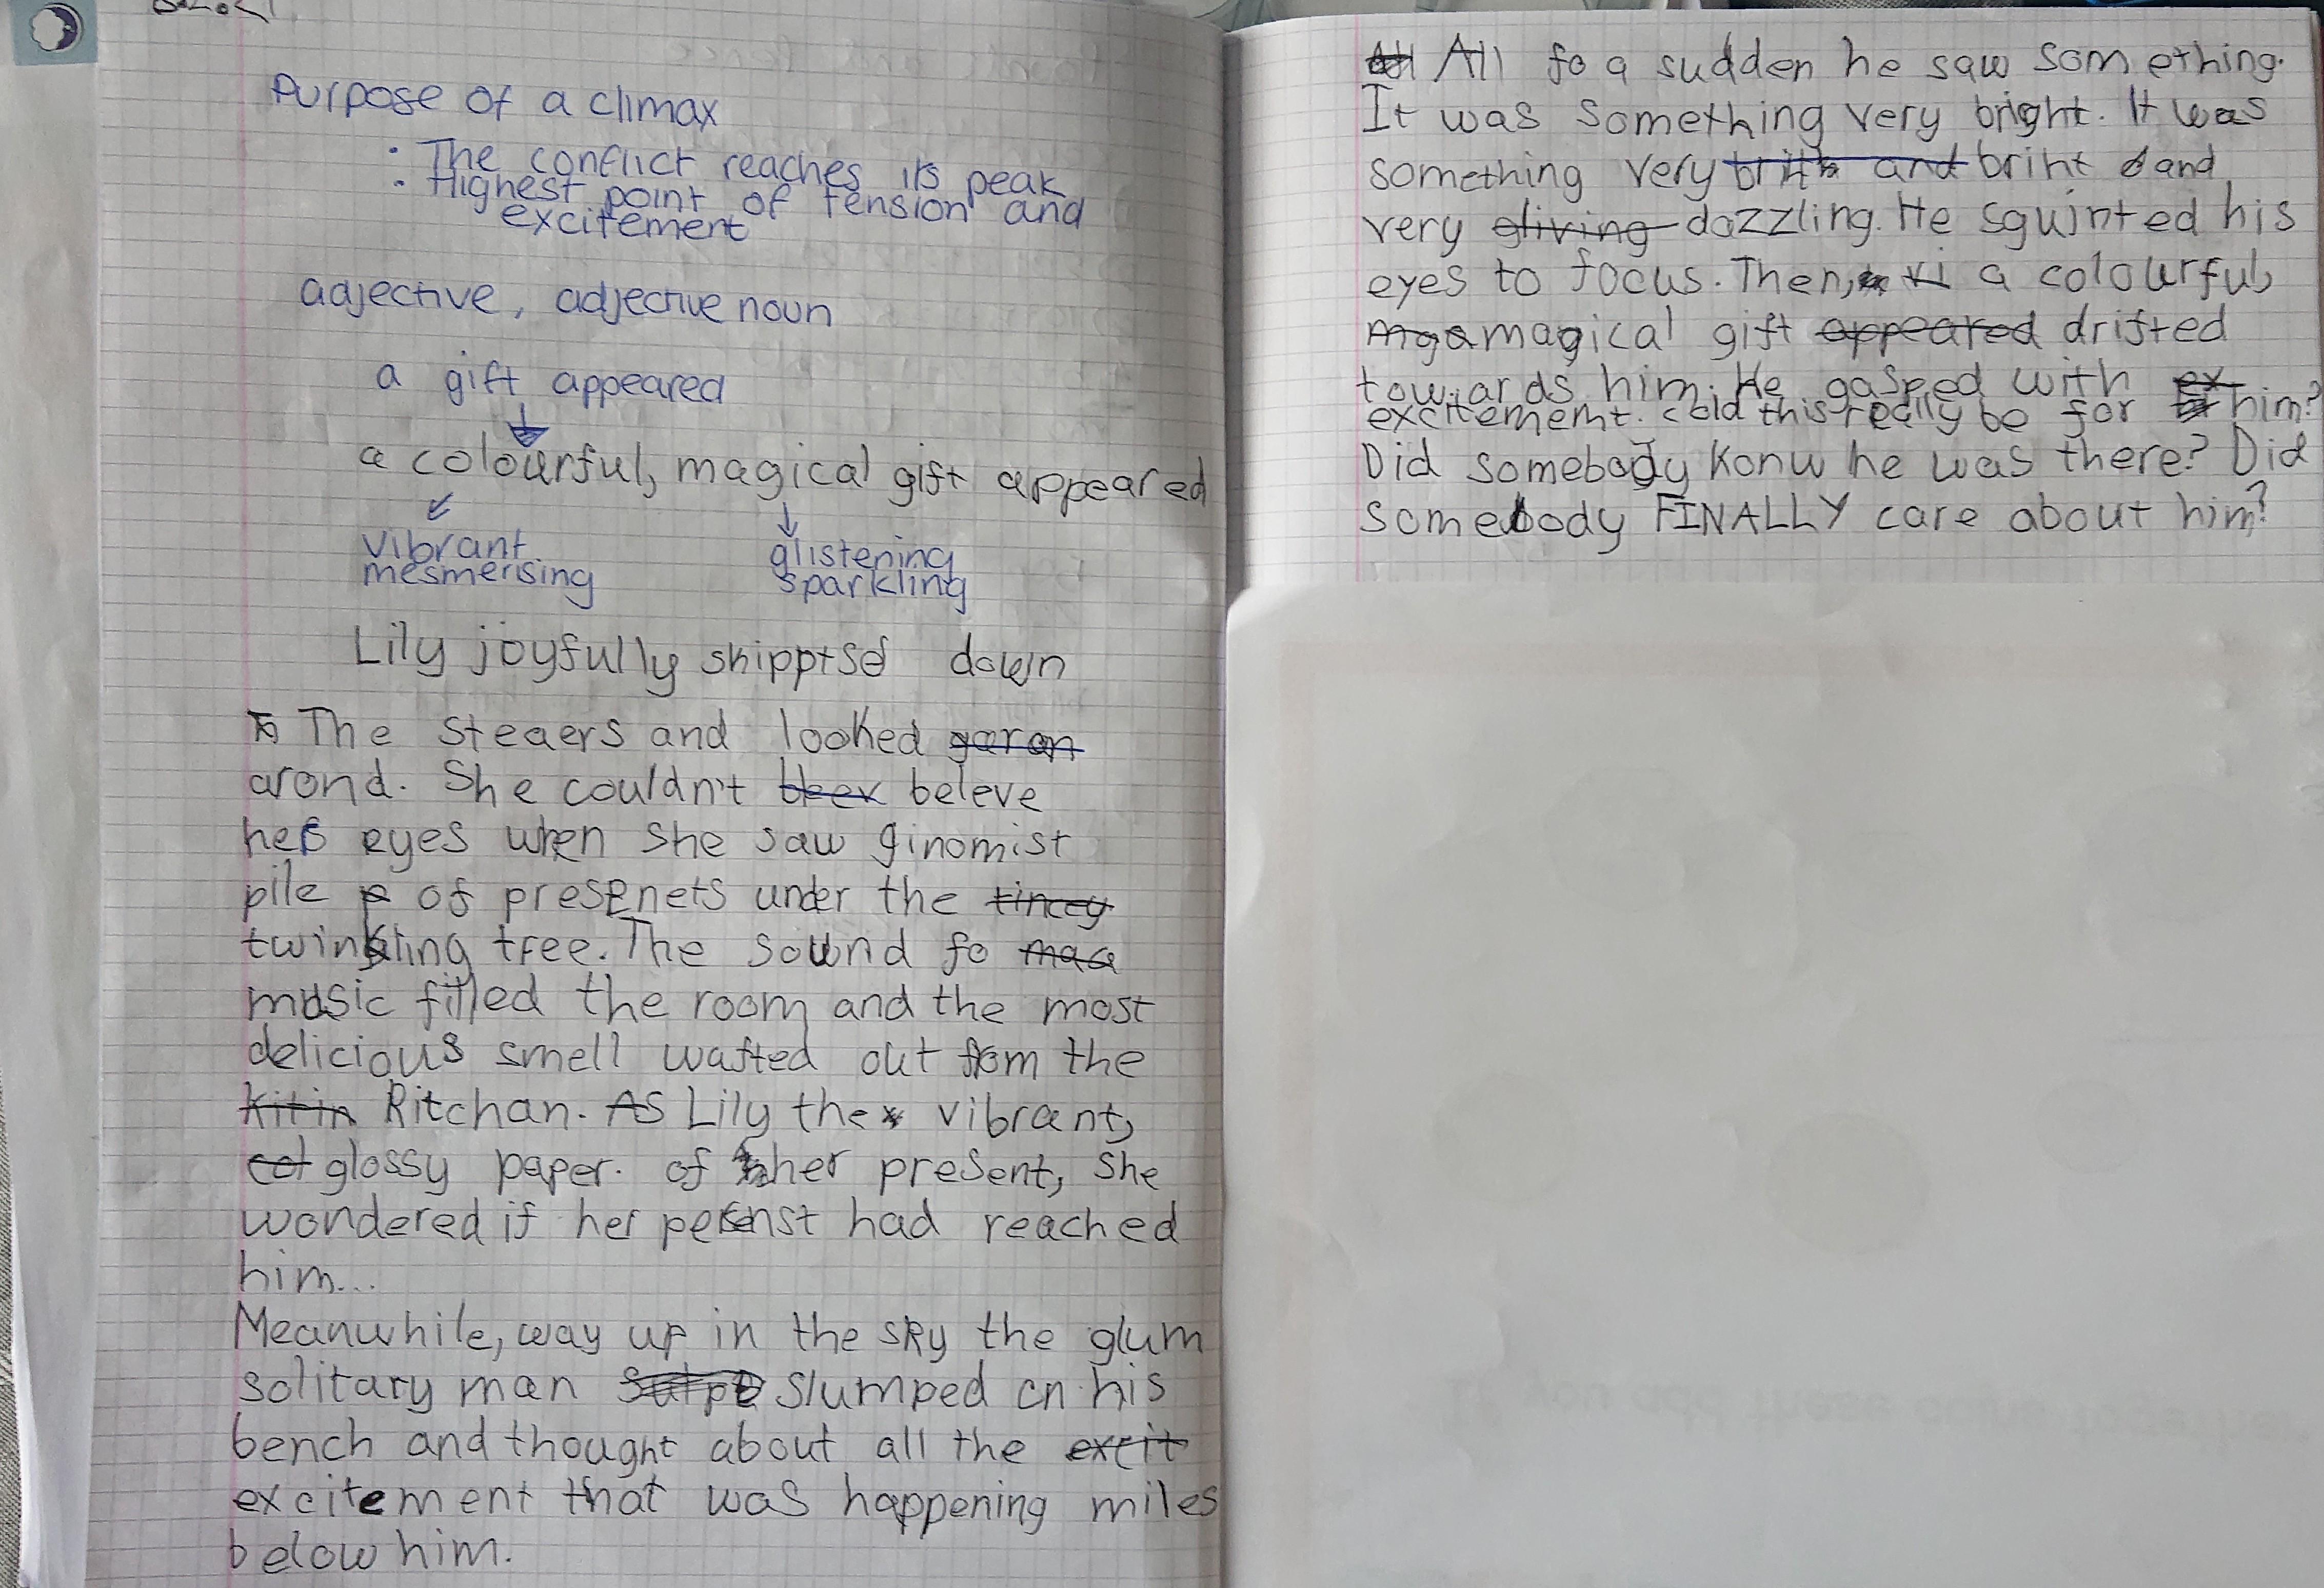 Purpose of a climax
· The conflict reaches its peak
· Highest point of tension and
excitement
adjective, adjective noun
a gift appeared
a colourful, magical gift appeared
vibrant glistening
mesmerising sparkling
Lily joyfully down
The steaers and looked
arond. She couldn't beleve
her eyes when she saw ginomist
pile of presenets under the
twinkling tree. The sound fo
music filled the room and the most
delicious smell wafted out from the
Kitin Ritchan. As Lily the vibrant,
glossy paper. of her present, she
wondered if her had reached
him...
Meanwhile, way up in the sky the glum
solitary man slumped on his
bench and thought about all the excit
excitement that was happening miles
below him.
All fo a sudden he saw something.
It was something very bright. It was
something very brith and briht and
very gliving dazzling. He squinted his
eyes to focus. Then, a colourful,
magical gift appeared drifted
towards him. He gasped with ex
excitememt. cold this really be for him?
Did somebody Konw he was there? Did
somebody FINALLY care about him?